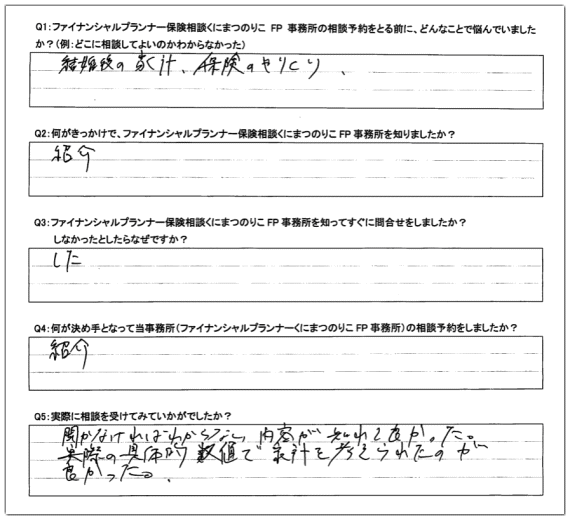 Q1:ファイナンシャルプランナー保険相談くにまつのりこ FP 事務所の相談予約をとる前に、どんなことで悩んでいました
か?(例:どこに相談してよいのかわからなかった)
結婚後の家計、保険のやりくり、
Q2:何がきっかけで、ファイナンシャルプランナー保険相談くにまつのりこ FP 事務所を知りましたか?
紹介
Q3:ファイナンシャルプランナー保険相談くにまつのりこ FP 事務所を知ってすぐに問合せをしましたか?
しなかったとしたらなぜですか?
した
Q4:何が決め手となって当事務所(ファイナンシャルプランナーくにまつのりこ FP 事務所)の相談予約をしましたか?
紹介
Q5:実際に相談を受けてみていかがでしたか?
聞かなければわからない内容が知れて良かった。
実際の具体的数値で家計を考えられたのが
良かった。